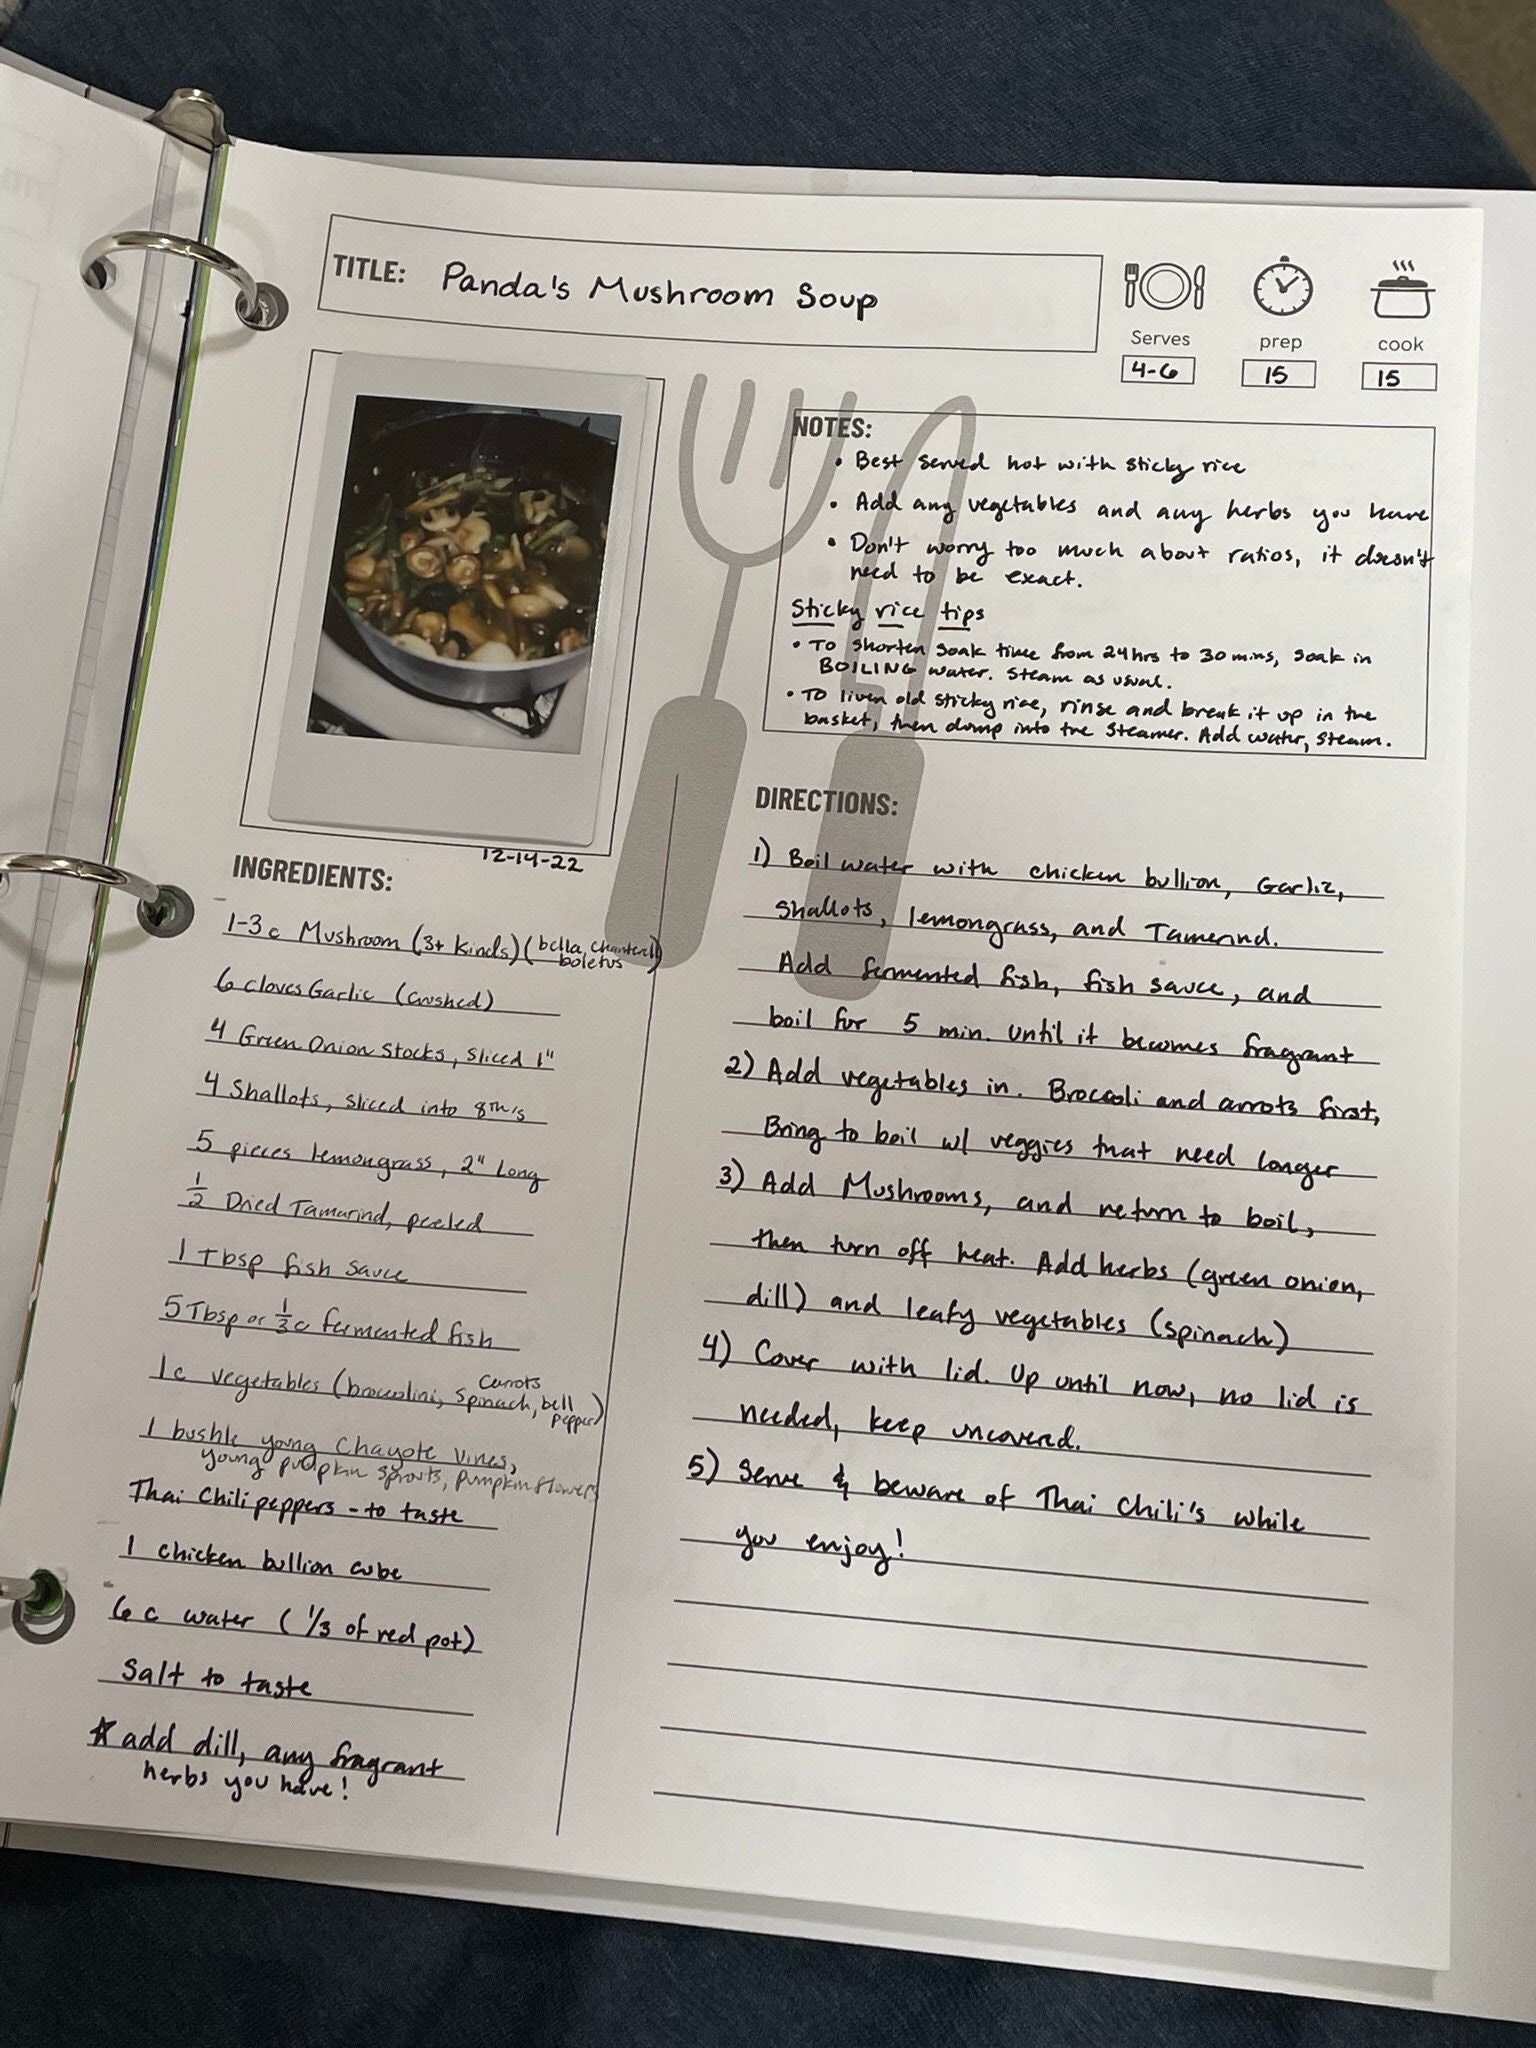 TITLE: Panda's Mushroom Soup
Serves
4-6
prep
15
cook
15
NOTES:
• Best served hot with sticky rice
• Add any vegetables and any herbs you have
• Don't worry too much about ratios, it doesn't
need to be exact.
Sticky rice tips
• To shorten soak time from 24hrs to 30 mins, soak in
BOILING water. Steam as usual.
• To liven old sticky rice, rinse and break it up in the
basket, then dump into the steamer. Add water, steam.
12-14-22
INGREDIENTS:
1-3c Mushroom (3+ kinds) (bella, chanterell
boletus)
6 cloves Garlic (crushed)
4 Green Onion Stocks, sliced 1"
4 Shallots, sliced into 8th's
5 pieces lemongrass, 2" long
1/2 Dried Tamarind, peeled
1 Tbsp fish sauce
5 Tbsp or 1/3c fermented fish
carrots
1c vegetables (broccolini, spinach, bell
pepper)
1 bushle young Chayote vines,
young pumpkin sprouts, pumpkin flowers
Thai Chili peppers - to taste
1 chicken bullion cube
6 c water (1/3 of red pot)
Salt to taste
☆ add dill, any fragrant
herbs you have!
DIRECTIONS:
1) Boil water with chicken bullion, Garlic,
Shallots, lemongrass, and Tamerind.
Add fermented fish, fish sauce, and
boil for 5 min. until it becomes fragrant
2) Add vegetables in. Broccoli and arrots first,
Bring to boil w/ veggies that need longer
3) Add Mushrooms, and return to boil,
then turn off heat. Add herbs (green onion,
dill) and leafy vegetables (spinach)
4) Cover with lid. Up until now, no lid is
needed, keep uncovered.
5) Serve & beware of Thai Chili's while
you enjoy!